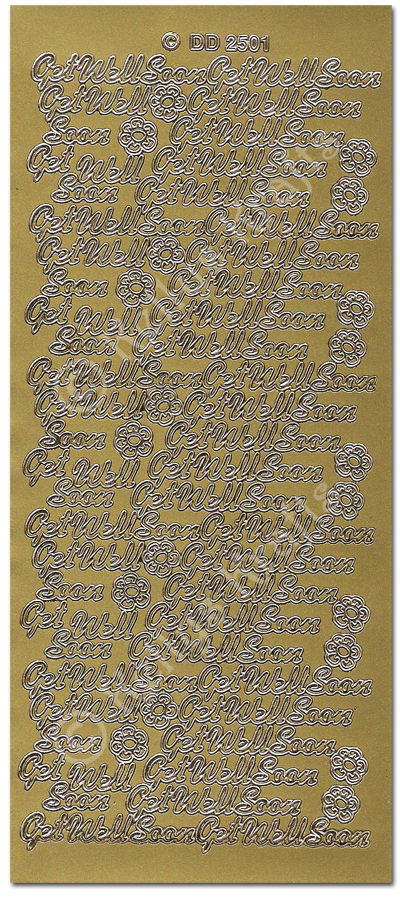 © DD 2501
Get Well Soon Get Well Soon
Get Well Get Well Soon
Soon Get Well Soon
Get Well Get Well Soon
Soon Get Well Soon
Get Well Soon Get Well Soon
Get Well Get Well Soon
Soon Get Well Soon
Get Well Get Well Soon
Soon Get Well Soon
Get Well Soon Get Well Soon
Get Well Get Well Soon
Soon Get Well Soon
Get Well Get Well Soon
Soon Get Well Soon
Get Well Soon Get Well Soon
Get Well Get Well Soon
Soon Get Well Soon
Get Well Get Well Soon
Soon Get Well Soon
Get Well Soon Get Well Soon
Get Well Get Well Soon
Soon Get Well Soon
Get Well Get Well Soon
Soon Get Well Soon
Get Well Soon Get Well Soon